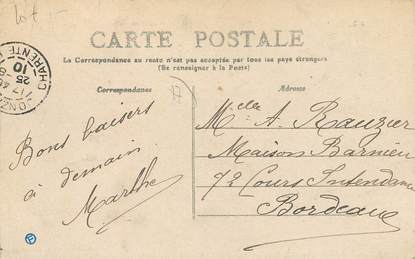 Lot -
CARTE POSTALE
La Correspondance au recto n'est pas acceptée par tous les pays étrangers
(Se renseigner à la Poste)
Correspondance
Adresse
CHARENTE
17
25
10
Bons baisers
à demain
Marthe
Melle A. Rauzier
Maison Barnieu
72 Cours Intendance
Bordeaux